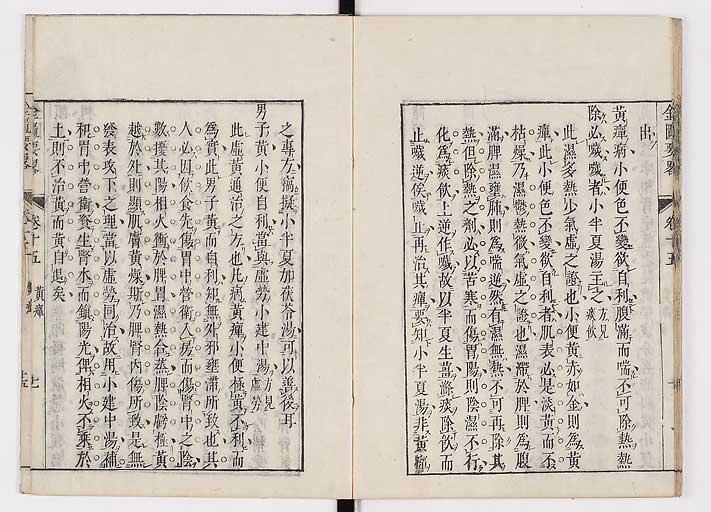 金匱要略 卷十五
出
黃疸病小便色不變欲自利腹滿而喘不可除熱熱
除必噦噦者小半夏湯主之方見痰飲
此濕多熱少氣虛之證也小便黃赤如金則為黃
疸此小便色不變欲自利者肌表必是淡黃而不
枯燥乃濕鬱熱微氣虛之證也濕滯於脾則為腹
滿脾濕壅肺則為喘逆然有濕無熱不可再除其
熱但除熱之劑必以苦寒而傷胃陽則陰濕不行
化為痰飲上逆作噦故以半夏生薑滌痰飲而
止噦逆俟噦止再治其疸要知小半夏湯非黃疸
之專方衛擬小半夏加茯苓湯可以善後耳
男子黃小便自利當與虛勞小建中湯方見虛勞
此虛黃通治之方也凡病黃疸小便極黃不利而
為實此男子黃而自利知無外邪壅滯所致也其
人必因飲食先傷胃中營衛入房而傷腎中之陰
數擾其陽相火衝於脾胃濕熱合蒸脾陰臟權黃
越於外則顯肌膚黃燥斯乃脾腎內傷所致是無
發表攻下之理當以虛勞同治故用小建中湯補
和胃中營衛資生腎水而鎮陽光俾相火不乘於
土則不治黃而黃自退矣
金匱要略 卷十五 黃疸